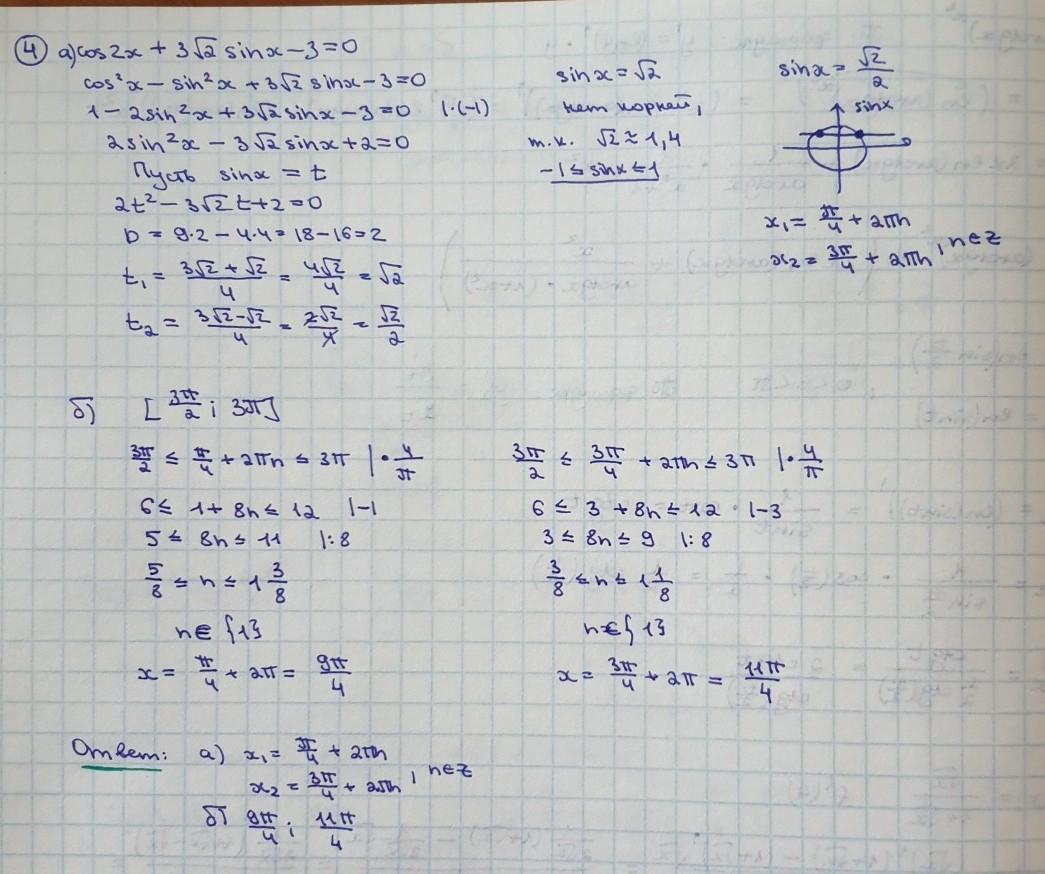 4 а) cos2x + 3√2 sinx − 3 = 0
cos²x − sin²x + 3√2 sinx − 3 = 0
1 − 2sin²x + 3√2 sinx − 3 = 0 |·(−1)
2sin²x − 3√2 sinx + 2 = 0
Пусть sinx = t
2t² − 3√2 t + 2 = 0
D = 9·2 − 4·4 = 18 − 16 = 2
t₁ = (3√2 + √2)/4 = 4√2/4 = √2
t₂ = (3√2 − √2)/4 = 2√2/4 = √2/2
sinx = √2
нет корней,
т.к. √2 ≈ 1,4
−1 ≤ sinx ≤ 1
sinx = √2/2
sinx
x₁ = π/4 + 2πn
x₂ = 3π/4 + 2πn, n∈Z
б) [3π/2; 3π]
3π/2 ≤ π/4 + 2πn ≤ 3π |·4/π
6 ≤ 1 + 8n ≤ 12 |−1
5 ≤ 8n ≤ 11 |:8
5/8 ≤ n ≤ 1 3/8
n∈{1}
x = π/4 + 2π = 9π/4
3π/2 ≤ 3π/4 + 2πn ≤ 3π |·4/π
6 ≤ 3 + 8n ≤ 12 |−3
3 ≤ 8n ≤ 9 |:8
3/8 ≤ n ≤ 1 1/8
n∈{1}
x = 3π/4 + 2π = 11π/4
Ответ: а) x₁ = π/4 + 2πn
x₂ = 3π/4 + 2πn, n∈Z
б) 9π/4; 11π/4